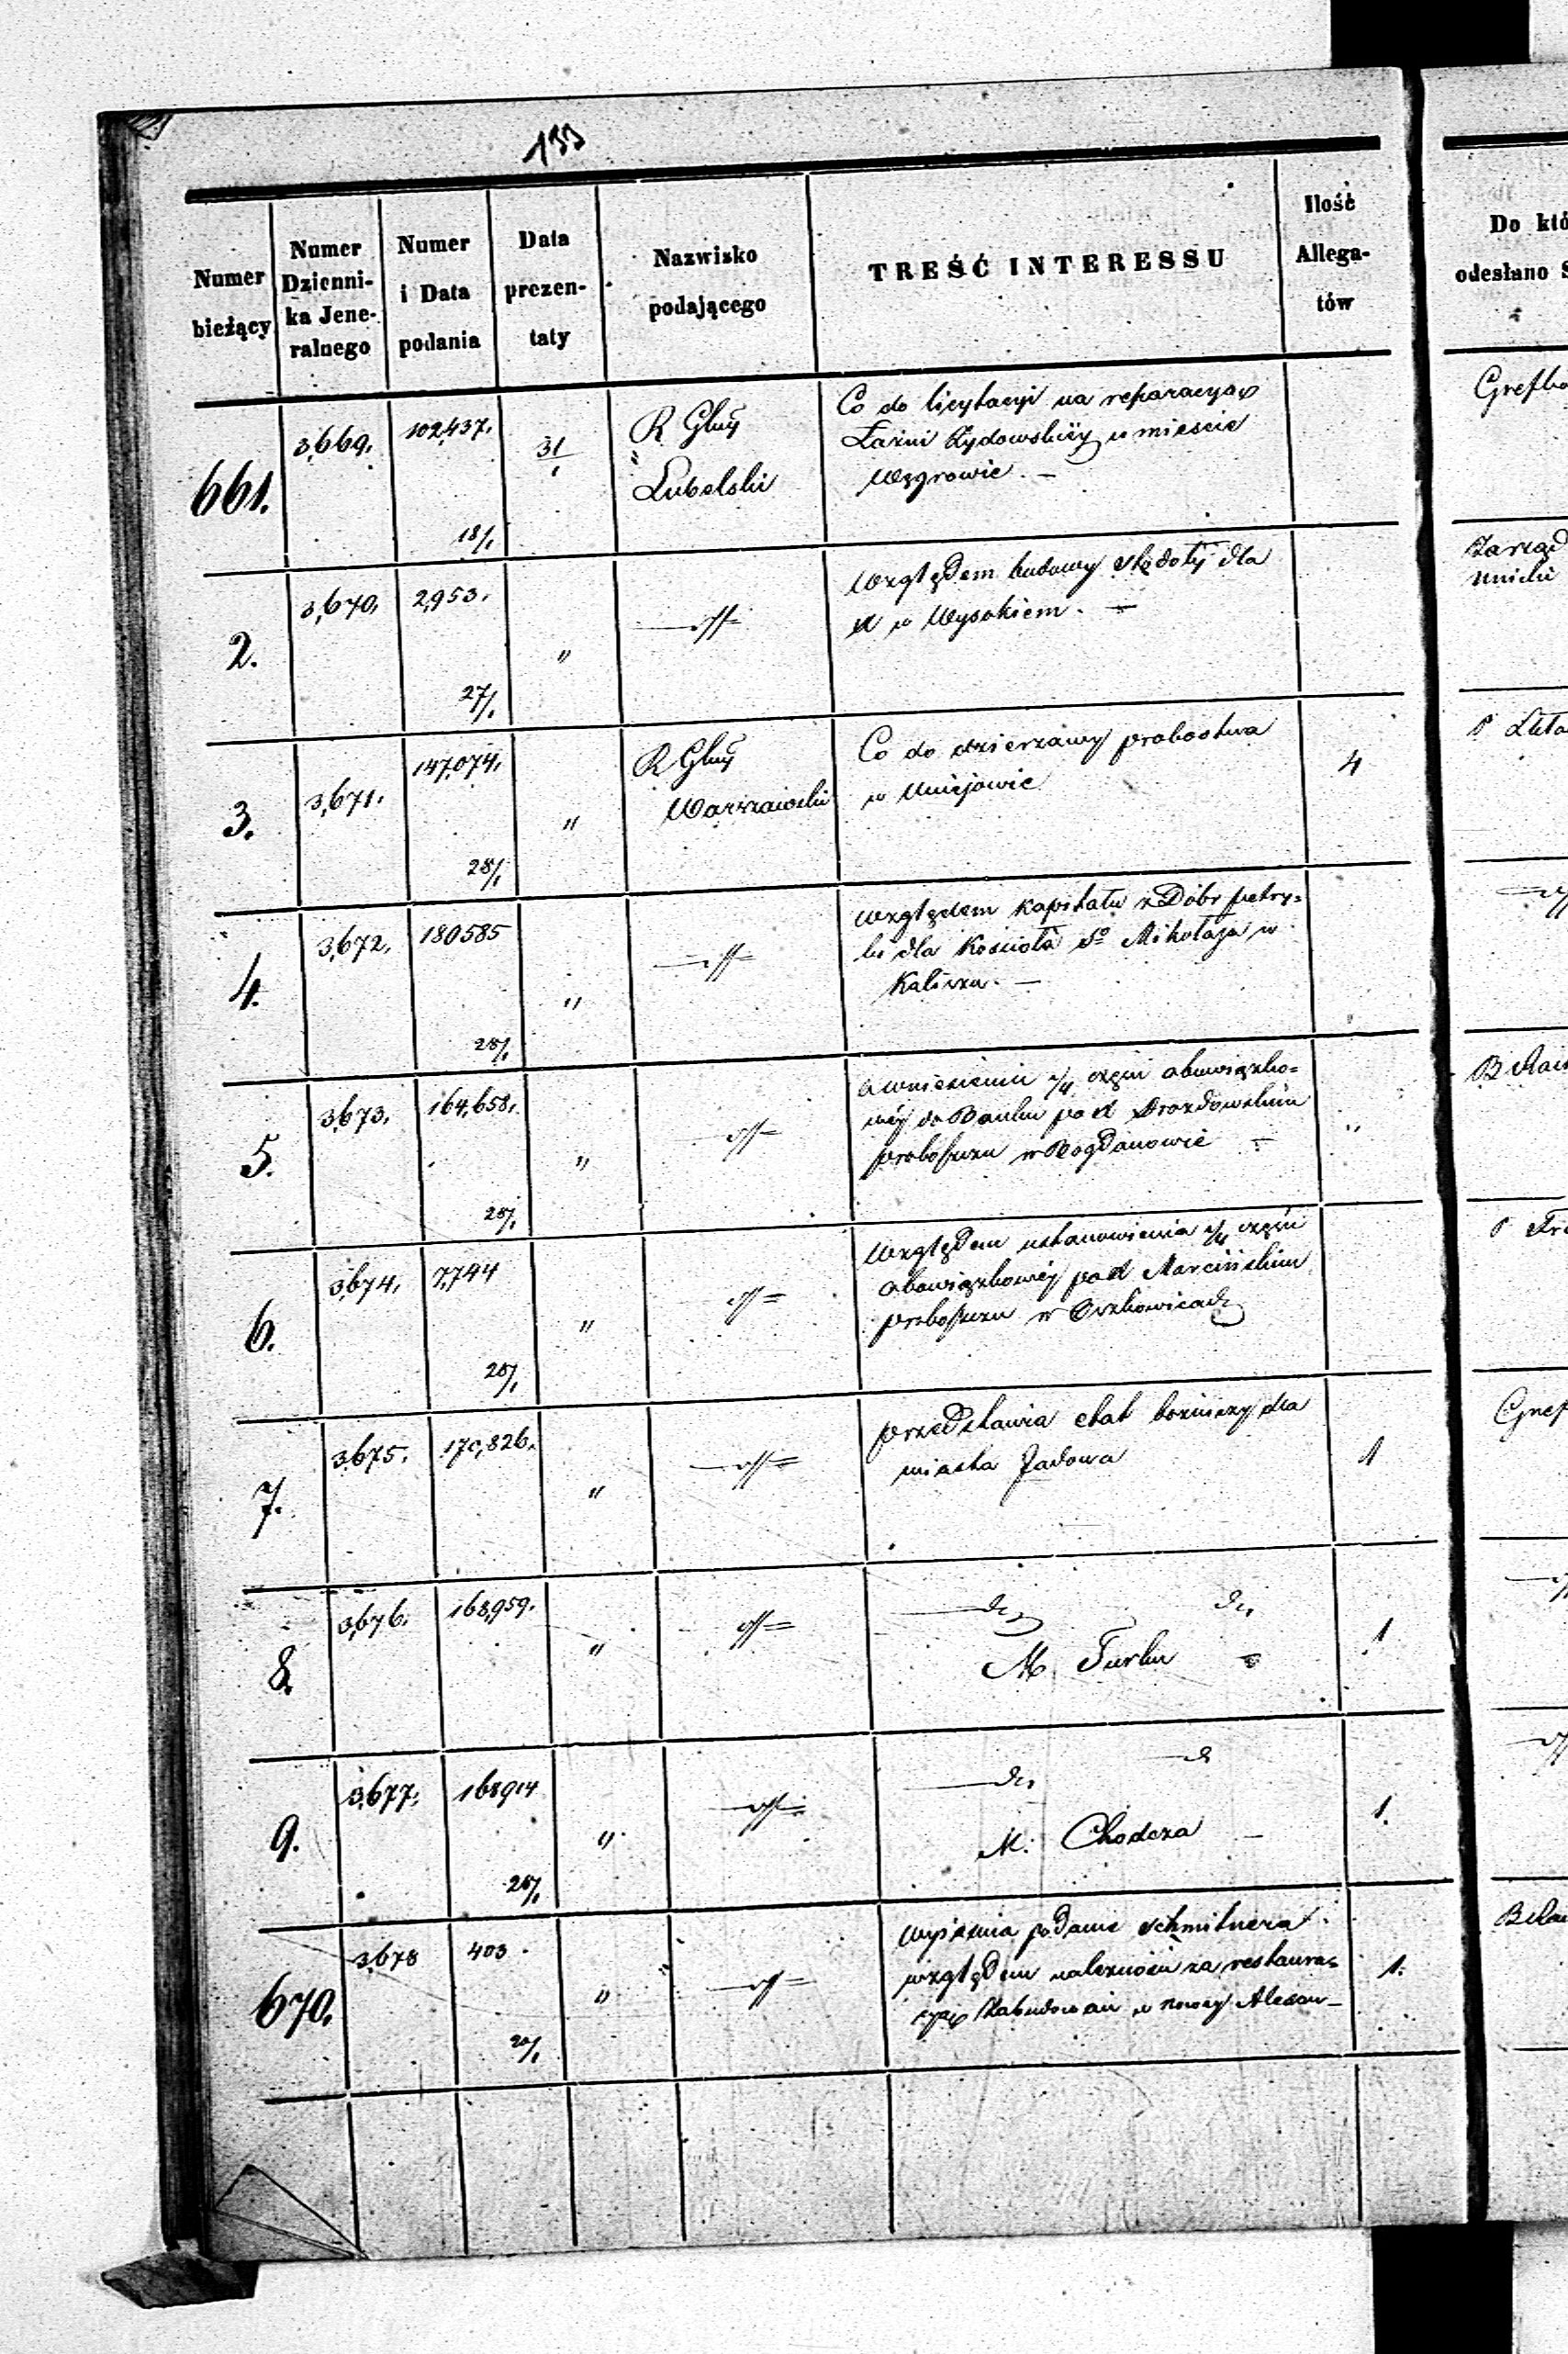 133
Numer bieżący
Numer Dzienni-ka Jene-ralnego
Numer i Data podania
Data prezen-taty
Nazwisko podającego
TREŚĆ INTERESSU
Ilość Allega-tów
Do któ
odesłano S
661.
3,669.
102,437.
18/1
31/1
R Glny
Lubelski
Co do licytacyi na reparacyą
Łaźni Żydowskiéy w mieście
Węgrowie. —
2.
3,670.
2,953.
27/1
"
Względem budowy stodoły dla
w Wysokiem. —
Zarząd
3.
3,671.
147,074.
28/1
"
R Glny
Warszawski
Co do dzierzawy probostwa
w Uniejowie
4
4.
3,672.
180585
28/1
"
Względem kapitału z Dóbr
dla Kościoła Sgo Mikołaja w
Kaliszu. —
5.
3,673.
164,658.
28/1
"
części obowiązko=
wéj do Banku pod Drozdowskim
proboszczu w Bogdanowie
6.
3,674.
7,744
28/1
"
Względem ustanowienia części
obowiązkowéj pod Marcińskim
proboszczu w
7.
3,675.
170,826.
"
przedstawia etat bożniczy dla
miasta Jadowa
1
8.
3,676.
168,959.
"
do do
M. Turku
1
9.
3,677.
168914
28/1
"
do do
M. Chodcza —
1.
670.
3,678
403.
"
podanie Schmitnera
względem należności za restaura=
cyą Zabudowań w nowey Alexan—
1.